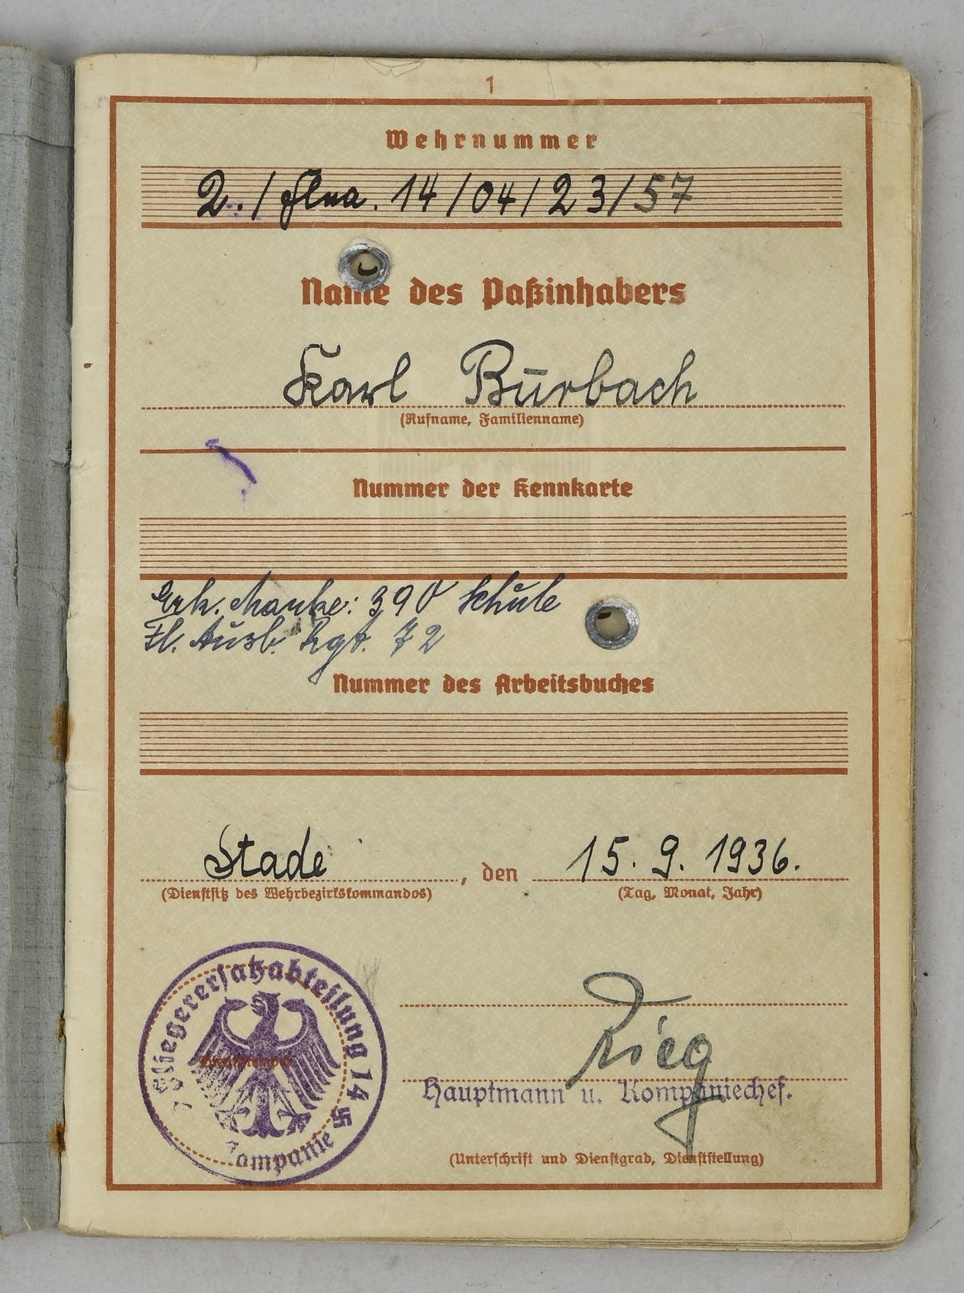 1
Wehrnummer
2./Flna. 14/04/23/57
Name des Paßinhabers
Karl Burbach
(Rufname, Familienname)
Nummer der Kennkarte
Erk. Marke: 390 Schule
Fl. Ausb. Rgt. 72
Nummer des Arbeitsbuches
Stade, den 15. 9. 1936.
(Dienstsitz des Wehrbezirkskommandos) (Tag, Monat, Jahr)
Fliegerersatzabteilung 14
Kompanie
Hauptmann u. Kompaniechef.
(Unterschrift und Dienstgrad, Dienststellung)